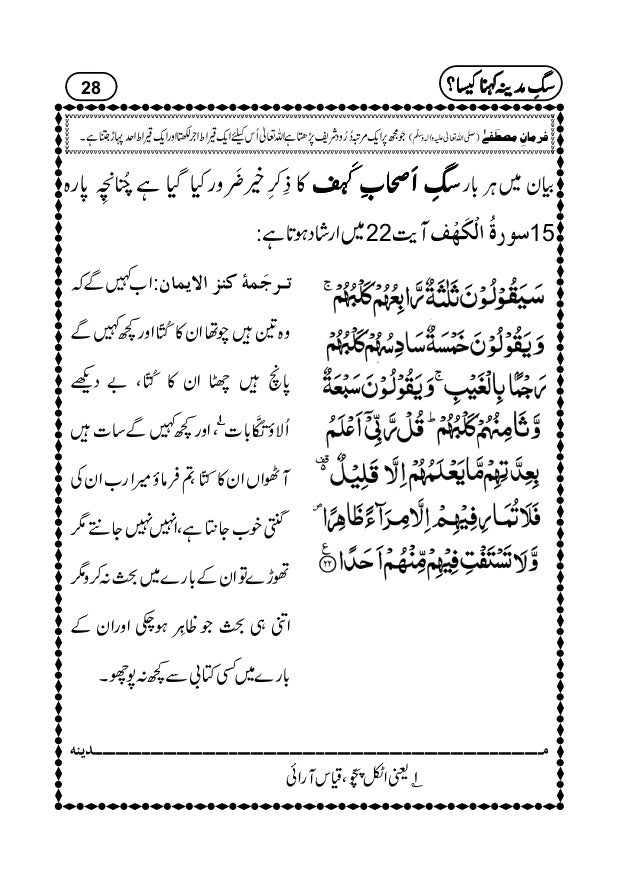 سگِ مدینہ کہنا کیسا؟
28
فرمانِ مصطَفٰے (صلی اللہ تعالیٰ علیہ واٰلہٖ وسلم) جو مجھ پر ایک مرتبہ دُرُود شریف پڑھتا ہے اللہ تعالیٰ اُس کیلئے ایک قیراط اجر لکھتا اور ایک قیراط اُحد پہاڑ جتنا ہے۔
بیان میں ہر بار سگِ اَصحابِ کَہف کا ذِکرِ خیر ضَرور کیا گیا ہے چُنانچِہ پارہ
15 سورۃُ الْکَہْف آیت 22 میں ارشاد ہوتا ہے:
سَیَقُوْلُوْنَ ثَلٰثَۃٌ رَّابِعُہُمْ کَلْبُہُمْ ۚ
وَ یَقُوْلُوْنَ خَمْسَۃٌ سَادِسُہُمْ کَلْبُہُمْ
رَجْمًۢا بِالْغَیْبِ ۚ وَ یَقُوْلُوْنَ سَبْعَۃٌ
وَّ ثَامِنُہُمْ کَلْبُہُمْ ؕ قُلْ رَّبِّیْۤ اَعْلَمُ
بِعِدَّتِہِمْ مَّا یَعْلَمُہُمْ اِلَّا قَلِیْلٌ ۬۟
فَلَا تُمَارِ فِیْہِمْ اِلَّا مِرَآءً ظَاہِرًا ۪
وَّ لَا تَسْتَفْتِ فِیْہِمْ مِّنْہُمْ اَحَدًا ﴿۲۲﴾ ع
تــرجَمۂ کنز الایمان: اب کہیں گے کہ
وہ تین ہیں چوتھا ان کا کُتّا اور کچھ کہیں گے
پانچ ہیں چھٹا ان کا کُتّا، بے دیکھے
اَلاؤ تُکّا بات ۱؎، اور کچھ کہیں گے سات ہیں
آٹھواں ان کا کتا تم فرماؤ میرا رب ان کی
گنتی خوب جانتا ہے، انہیں نہیں جانتے مگر
تھوڑے تو ان کے بارے میں بحث نہ کرو مگر
اتنی ہی بحث جو ظاہِر ہوچکی اور ان کے
بارے میں کسی کتابی سے کچھ نہ پوچھو۔
مـــدینہ
۱؎ یعنی اٹکل پچّو، قیاس آرائی